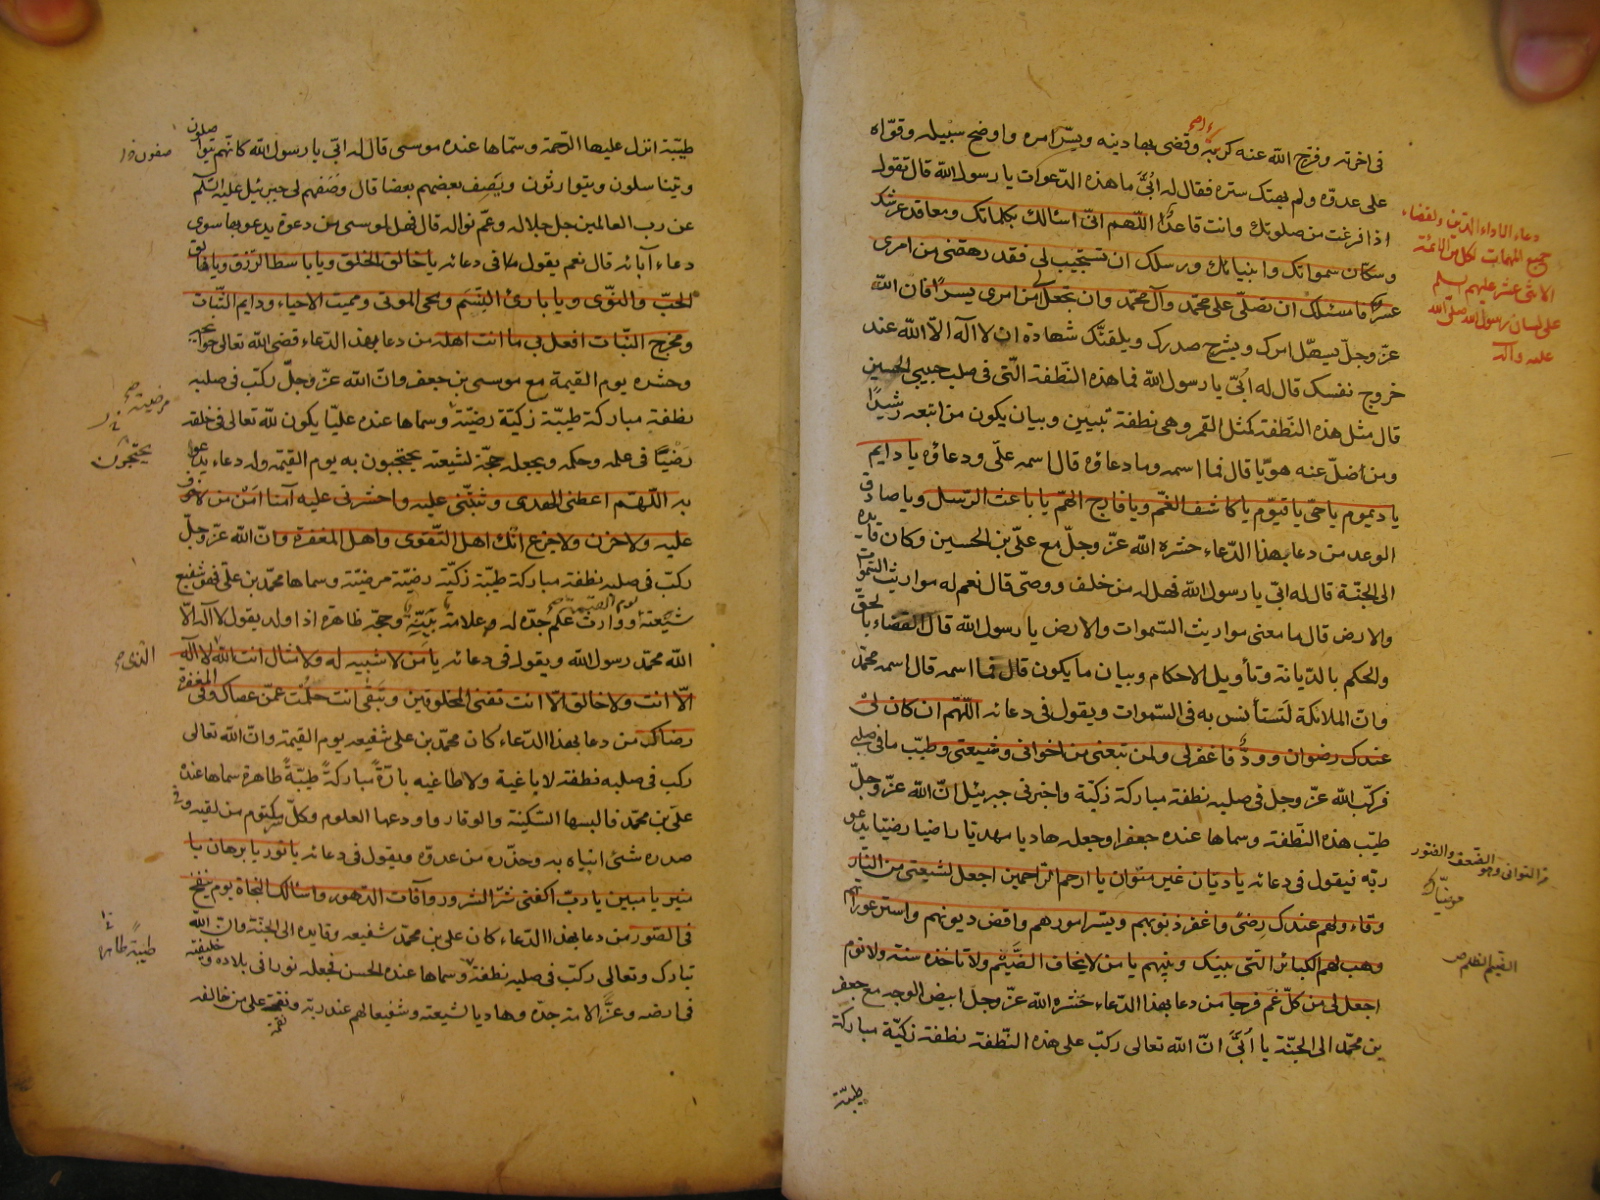 فى اخرته وفرّج الله عنه كربه وقضى بها دينه ويسّر امره واوضح سبيله وقوّاه
على عدوّه ولم يهتك ستره فقال له اُبَىّ ما هذه الدّعوات يا رسول الله قال تقول
اذا فرغت من صلوتك وانت قاعد اللّهم انّى اسئالك بكلماتك ومعاقد عرشك
وسكّان سمواتك وانبيائك ورسلك ان تستجيب لى فقد رهقنى من امرى
عسرٌ فاسئلك ان تصلّى على محمّد وآل محمّد وان تجعل لى من امرى يسرًا فان الله
عزّ وجلّ يسهّل امرك ويشرح صدرك ويلقنّك شهادة ان لا اله الّا الله عند
خروج نفسك قال له اُبىّ يا رسول الله فما هذه النّطفة الّتى فى صلب حبيبى الحسين
قال مثل هذه النّطفة كمثل القمر وهى نطفة تبيين وبيان يكون من اتبعه رشيدًا
ومن اضلّ عنه هويّا قال فما اسمه وما دعاؤه قال اسمه علّى ودعاؤه يا دايم
يا ديموم يا حىّ يا قيّوم يا كاشف الغمّ ويا فارج الهمّ يا باعث الرّسل ويا صادق
الوعد من دعا بهذا الدّعاء حشره الله عزّ وجلّ مع علّى بن الحسين وكان قايده
الى الجنّة قال له ابّى يا رسول الله فهل له من خلف ووصّى قال نعم له مواريث السّموات
والارض قال ما معنى مواريث السّموات والارض يا رسول الله قال القضاء بالحقّ
والحكم بالدّيانة وتأويل الاحكام وبيان ما يكون قال فما اسمه قال اسمه محمّد
وانّ الملائكة لَتستأنس به فى السّموات ويقول فى دعائه اللّهّم ان كان لى
عندك رضوان وودٌّ فاغفر لى ولمن تبعنى من اخوانى وشيعتى وطيّب ما فى صلبى
فركّب الله عزّ وجلّ فى صلبه نطفة مباركة زكيّة واخبرنى جبرئيل انّ الله عزّ وجلّ
طيّب هذه النّطفة وسماها عنده جعفرا وجعله هاديا مهديّا راضيا رضيّا يدعو
ربّه فيقول فى دعائه يا ديّان غير متوان يا ارحم الرّاحمين اجعل لشيعتى من النّار
وقاء ولهم عندك رضًى واغفر ذنوبهم ويسّر امورهم واقض ديونهم واستر عوراتهم
وهب لهم الكبائر الّتى بينك وبينهم يا من لا يخاف الضَّيْم ولا تأخذه سنة ولا نوم
اجعل لى من كلّ غم فرجا من دعا بهذا الدّعاء حَشره الله عزّ وجلّ ابيض الوجه مع جعفر
بن محمّد الى الجنّة يا اُبَىَّ انّ الله تعالى ركّب على هذه النّطفة نطفة زكيّة مباركة
طيّبة
دعاء لاداء الدّين ولقضاء
جميع المهمات لكل من الائمّة
الاثنى عشر عليهم السلم
على لسان رسول الله صلّى الله
عليه وآله
من التوانى وهو الضّعف والفتور
الضّيم الظلم ص
طيّبة انزل عليها الرّحمة وسمّاها عنده موسى قال له ابّى يا رسول الله كانّهم يتواصلون
ويتناسلون ويتوارثون ويَصِف بعضهم بعضا قال وصَفهم لى جبرئيل عليه السّلم
عن رب العالمين جل جلاله وعمّ نواله قال فهل لموسى من دعوة يدعو بها سوى
دعاء آبائه قال نعم يقول فى دعائه يا خالق الخلق ويا باسط الرّزق ويا فالق
الحَبّ والنّوى ويا بارئ النّسَم ومحى الموتى ومميت الاحياء ودايم الثّبات
ومخرج النّبات افعل بى ما انت اهله من دعا بهذا الدّعاء قضى الله تعالى حوائجه
وحشره يوم القيمة مع موسى بن جعفر وانّ الله عزّ وجلّ ركّب فى صلبه
نطفة مباركة طيّبة زكيّة رضيّة وسماها عنده عليّا يكون للّه تعالى فى خلقه
رضيّا فى علمه وحكمه ويجعله حجّة لشيعته يحتجّون به يوم القيمة وله دعاء يدعو
به اللّهّم اعطنى الهدى وثبّتنى عليه واحشرنى عليه آمنا اَمْن من لا خوف
عليه ولا حزن ولا جزع انّك اهل التّقوى واهل المغفرة وانّ الله عزّ وجلّ
ركّب فى صلبه نطفة مباركة طيّبة زكيّة رضيّة مرضيّة وسماها محمّد بن علّى فهو شفيع
شيعته ووارث علم جدّه له علامة بيّنة وحجّة ظاهرة اذا ولد يقول لا اله الّا
الله محمّد رسول الله ويقول فى دعائه يا من لا شبيه له ولا مثال انت الله لا اله
الّا انت ولا خالق الّا انت تفنى المخلوقين وتَبقى انت حلُمت عمّن عصاك وفى المغفرة
رضاك من دعا بهذا الدّعاء كان محمّد بن على شفيعه يوم القيمة وانّ الله تعالى
ركب فى صلبه نطفة لا باغية ولا طاغيه بارّةً مباركةً طيّبةً طاهرة سماها عنده
علّى بن محمّد فالبسها السّكينة والوقار واودعها العلوم وكلّ سرّ مكتوم من لقيه وفى
صدره شئ انبأه به وحذّره من عدوّه ويقول فى دعائه يا نور يا برهان يا
منير يا مبين يا ربّ اكفنى شرّ الشرور وآفات الدّهور واسئالك النّجاة يوم ينفخ
فى الصّور من دعا بهذا الدّعاء كان على بن محمّد شفيعه وقايده الى الجنّة وانّ الله
تبارك وتعالى ركّب فى صلبه نطفة وسماها عنده الحسن فجعله نورا فى بلاده وخليفته
فى ارضه وعزَّا لامة جدّه وهاديا لشيعته وشفيعا لهم عند ربّه ونقمة على من خالفه
مرضية
يحتجون
طيّبةً طاهرة
نقمة